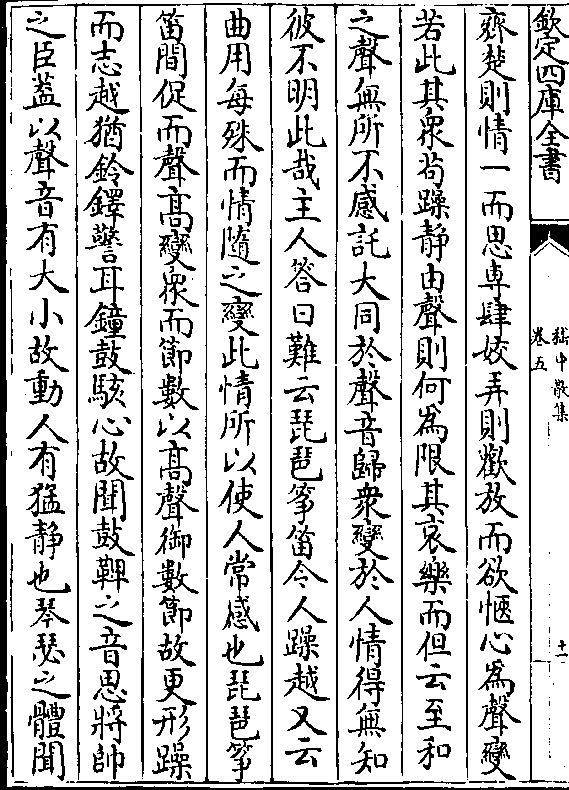 欽定四庫全書
嵇中散集
卷五
十一
齊楚則情一而思専肆姣弄則歡放而欲愜心為聲變
若此其衆茍躁静由聲則何為限其哀樂而但云至和
之聲無所不感託大同於聲音歸衆變於人情得無知
彼不明此哉主人答曰難云琵琶箏笛令人躁越又云
曲用每殊而情隨之變此情所以使人常感也琵琶箏
笛間促而聲髙變衆而節數以髙聲御數節故更形躁
而志越猶鈴鐸警耳鐘鼓駭心故聞鼓鞞之音思將帥
之臣葢以聲音有大小故動人有猛静也琴瑟之體聞